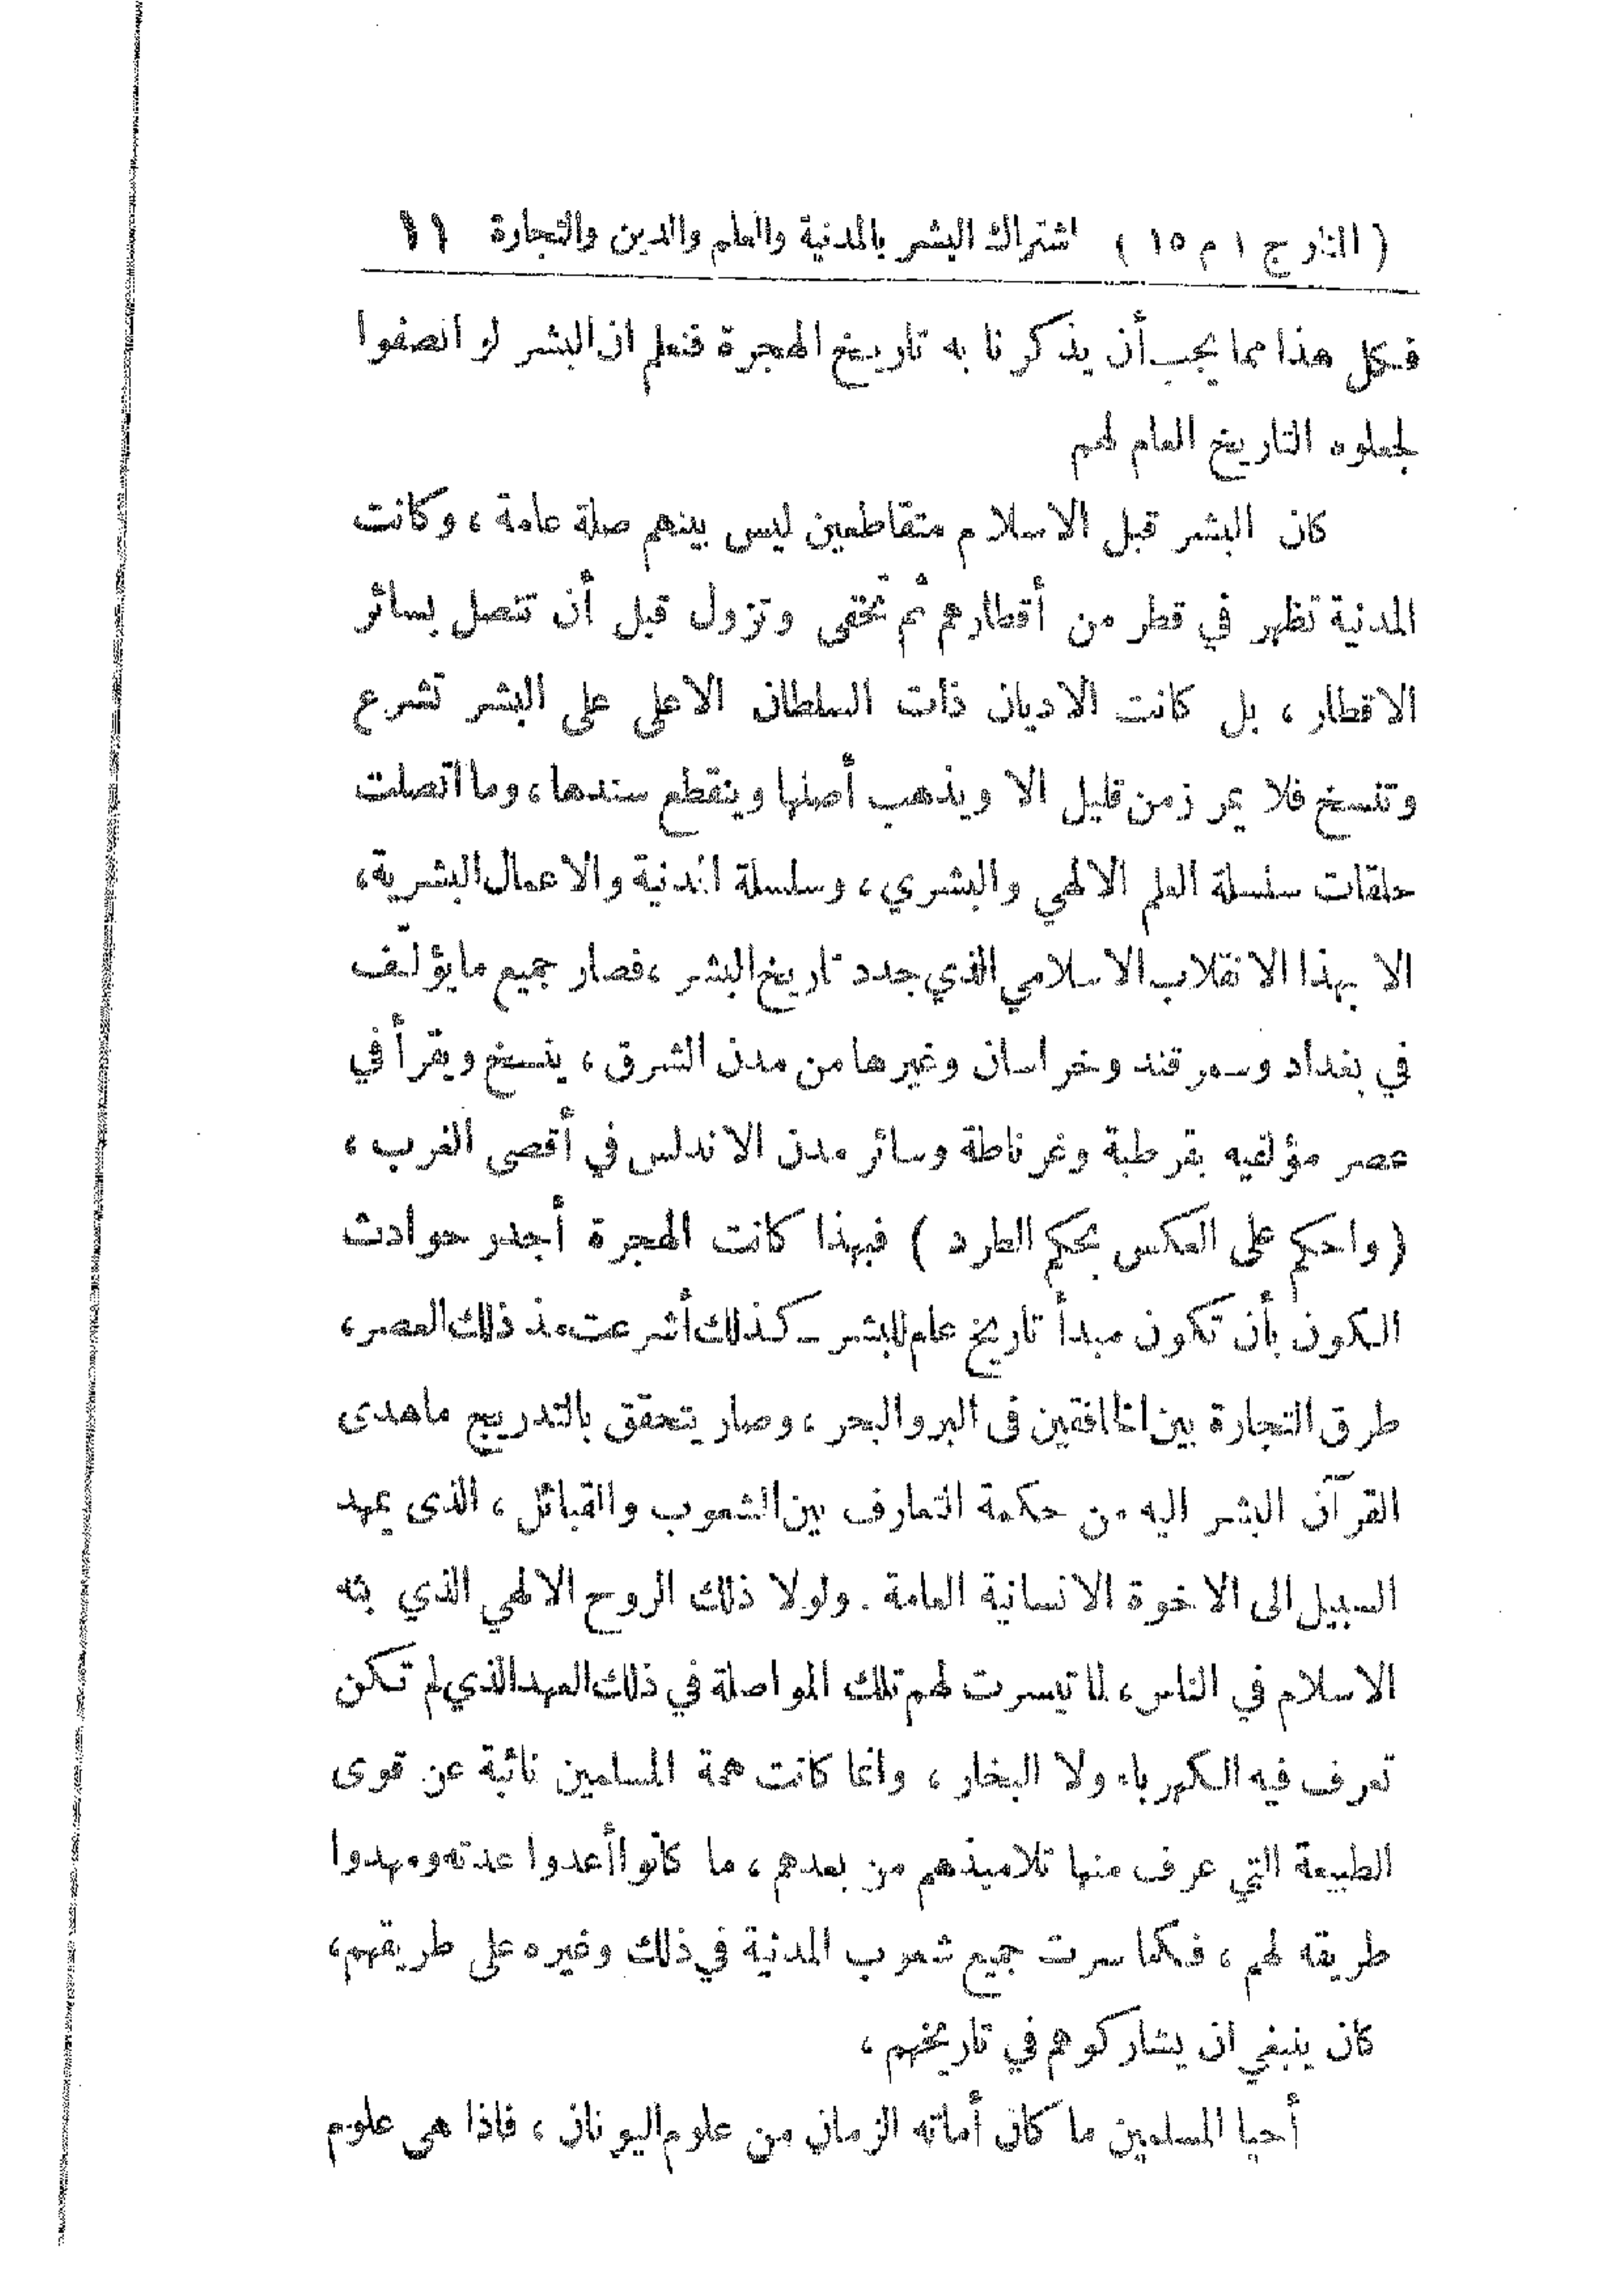 ( المنار ج ١ م ١٥ ) اشتراك البشر بالمدنية والعلم والدين والتجارة ١١
فكل هذا مما يجب أن يذكرنا به تاريخ الهجرة فنعلم ان البشر لو انصفوا
لجعلوه التاريخ العام لهم
كان البشر قبل الاسلام متقاطعين ليس بينهم صلة عامة ، وكانت
المدنية تظهر في قطر من أقطارهم ثم تخفى وتزول قبل أن تتصل بسائر
الاقطار ، بل كانت الاديان ذات السلطان الاعلى على البشر تشرع
وتنسخ فلا يمر زمن قليل الا ويذهب أصلها وينقطع سندها، وما اتصلت
حلقات سلسلة العلم الالهي والبشري ، وسلسلة المدنية والاعمال البشرية،
الا بهذا الانقلاب الاسلامي الذي جدد تاريخ البشر ، فصار جميع ما يؤلّف
في بغداد وسمرقند وخراسان وغيرها من مدن الشرق ، ينسخ ويقرأ في
عصر مؤلفيه بقرطبة وغرناطة وسائر مدن الاندلس في أقصى الغرب ،
( واحكم على العكس بحكم الطرد ) فبهذا كانت الهجرة أجدر حوادث
الكون بأن تكون مبدأ تاريخ عام للبشر ــ كذلك أشرعت منذ ذلك العصر،
طرق التجارة بين الخافقين فى البر والبحر ، وصار يتحقق بالتدريج ماهدى
القرآن البشر اليه من حكمة التعارف بين الشعوب والقبائل ، الذى يمهد
السبيل الى الاخوة الانسانية العامة . ولولا ذلك الروح الالهي الذي بثه
الاسلام في الناس ، لما تيسرت لهم تلك المواصلة في ذلك العهد الذي لم تكن
تعرف فيه الكهرباء ولا البخار ، وانما كانت همة المسلمين نائبة عن قوى
الطبيعة التي عرف منها تلاميذهم من بعدهم ، ما كانوا أعدوا عدته ومهدوا
طريقه لهم ، فكما سرت جميع شعوب المدنية في ذلك وغيره على طريقهم،
كان ينبغي ان يشاركوهم في تاريخهم ،
أحيا المسلمين ما كان أماته الزمان من علوم اليونان ، فاذا هي علوم